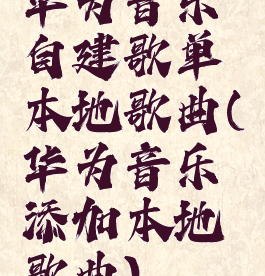 华为音乐
自建歌单
本地歌曲(
华为音乐
添加本地
歌曲)